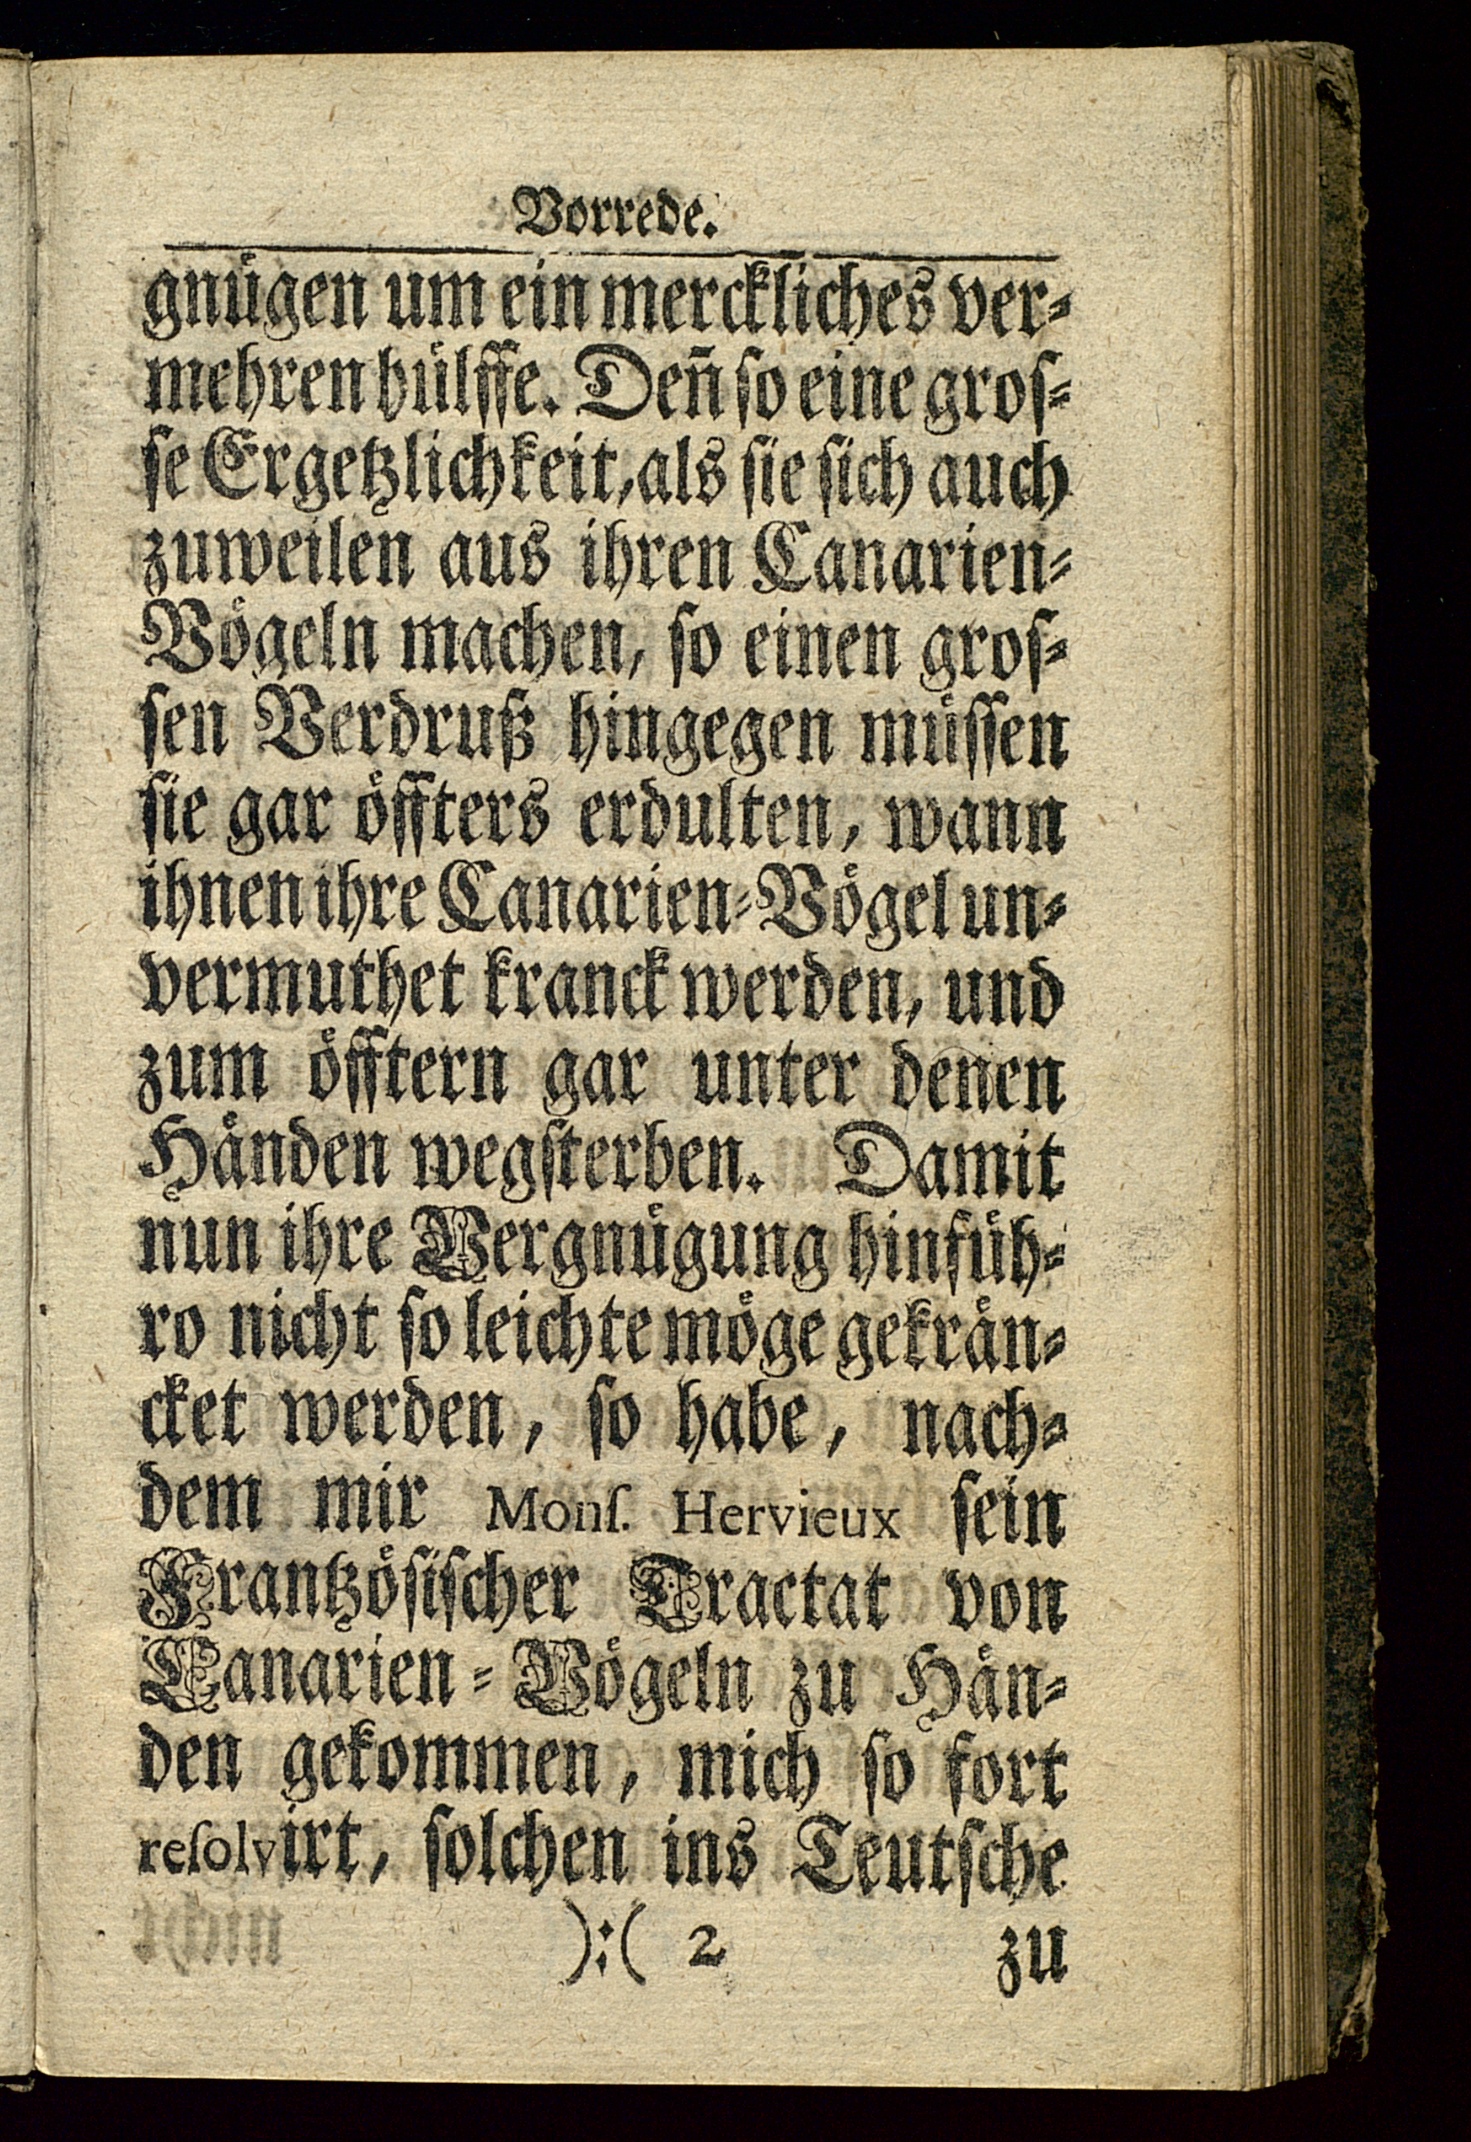 Vorrede.
gnuͤgen um ein merckliches ver⸗
mehren huͤlffe. Deñ ſo eine groſ⸗
ſe Ergetzlichkeit, als ſie ſich auch
zuweilen aus ihren Canarien⸗
Voͤgeln machen, ſo einen groſ⸗
ſen Verdruß hingegen muͤſſen
ſie gar oͤffters erdulten, wann
ihnen ihre Canarien⸗Voͤgel un⸗
vermuthet kranck werden, und
zum oͤfftern gar unter denen
Haͤnden wegſterben. Damit
nun ihre Vergnuͤgung hinfuͤh⸗
ro nicht ſo leichte moͤge gekraͤn⸗
cket werden, ſo habe, nach⸗
dem mir Monſ. Hervieux ſein
Frantzoͤſiſcher Tractat von
Canarien⸗Voͤgeln zu Haͤn⸗
den gekommen, mich ſo fort
reſolvirt, ſolchen ins Teutſche
):( 2 zu